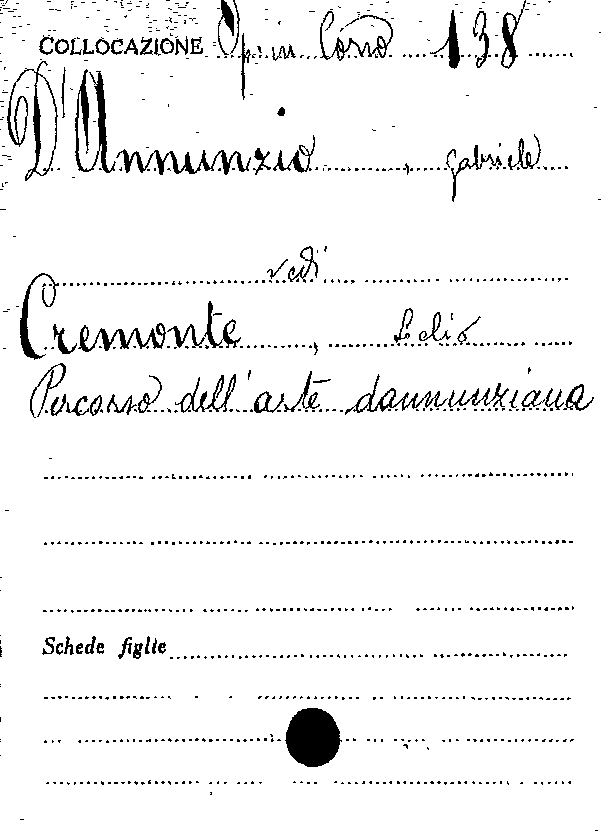 COLLOCAZIONE Op. in Corso 138
D'Annunzio, Gabriele
vedi
Cremonte, Lelio
Percorso dell'arte dannunziana
Schede figlie